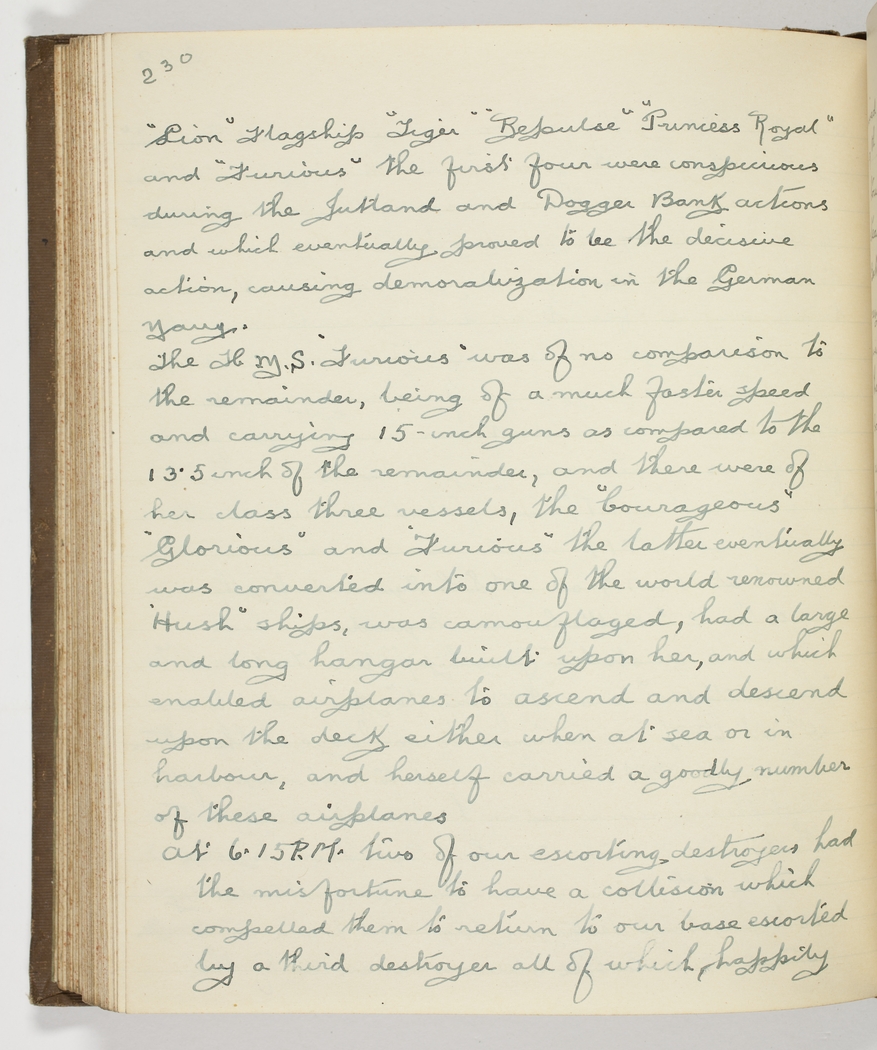 230
"Lion" Flagship "Tiger" "Repulse" "Princess Royal"
and "Furious" the first four were conspicious
during the Jutland and Dogger Bank actions
and which eventually proved to be the decisive
action, causing demoralization in the German
Navy.
The H.M.S. "Furious" was of no comparison to
the remainder, being of a much faster speed
and carrying 15-inch guns as compared to the
13.5 inch of the remainder, and there were of
her class three vessels, the "Courageous"
"Glorious" and "Furious" the latter eventually
was converted into one of the world renowned
"Hush" ships, was camouflaged, had a large
and long hangar built upon her, and which
enabled airplanes to ascend and descend
upon the deck either when at sea or in
harbour, and herself carried a goodly number
of these airplanes
At 6.15 P.M. two of our escorting destroyers had
the misfortune to have a collision which
compelled them to return to our base escorted
by a third destroyer all of which, happily